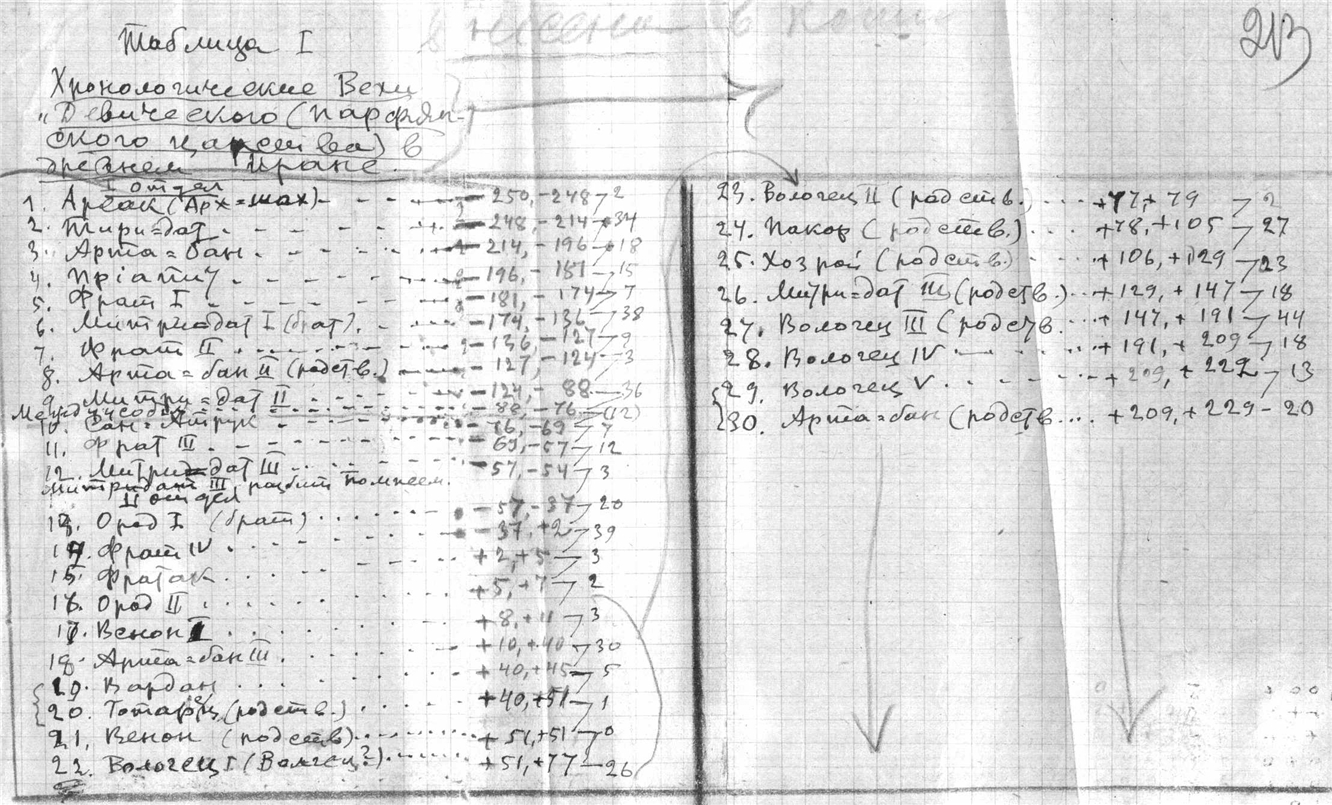 Таблица I
213
Хронологические Вехи
"Девического (парфян-
ского царства) в
древнем Иране.
I отдел
1. Арсак (Арх=шах) - - - - 250, - 248 → 2
2. Тири=дат - - - - 248, - 214 → 34
3. Арта=бан - - - - 214, - 196 → 18
4. Пріатич - - - - 196, - 181 → 15
5. Фрат I - - - - 181, - 174 → 7
6. Митри=дат I (брат) - - - 174, - 136 → 38
7. Фрат II - - - - 136, - 127 → 9
8. Арта=бан II (родств.) - - 127, - 124 → 3
9. Митри=дат II - - - - 124, - 88 → 36
- - - - 88, - 76 → (12)
10. - - - - 76, - 69 → 7
11. Фрат III - - - - 69, - 57 → 12
12. Митри=дат III - - - - 57, - 54 → 3
Митридат III разбит Помпеем.
II отдел
13. Ород I (брат) . . . . - 57, - 37 → 20
14. Фрат IV . . . . - 37, + 2 → 39
15. Фратак . . . . + 2, + 5 → 3
16. Ород II . . . . + 5, + 7 → 2
17. Венон I . . . . + 8, + 11 → 3
18. Арта=бан III . . . . + 10, + 40 → 30
19. Вардан . . . . + 40, + 45 → 5
20. (родств.) . . . . + 40, + 51 → 1
21. Венон (родств) . . . . + 51, + 51 → 0
22. Вологец I (Волгец?) . . . . + 51, + 77 — 26
23. Вологец II (родств.) - - - + 77, + 79 → 2
24. Пакор (родств.) . . . . + 78, + 105 → 27
25. Хозрой (родств.) . . . + 106, + 129 → 23
26. Митри=дат III (родств.) . . . + 129, + 147 → 18
27. Вологец III (родств. . . . + 147, + 191 → 44
28. Вологец IV - - - - + 191, + 209 → 18
29. Вологец V . . . . + 209, + 222 → 13
30. Арта=бан (родств. . . . + 209, + 229 - 20